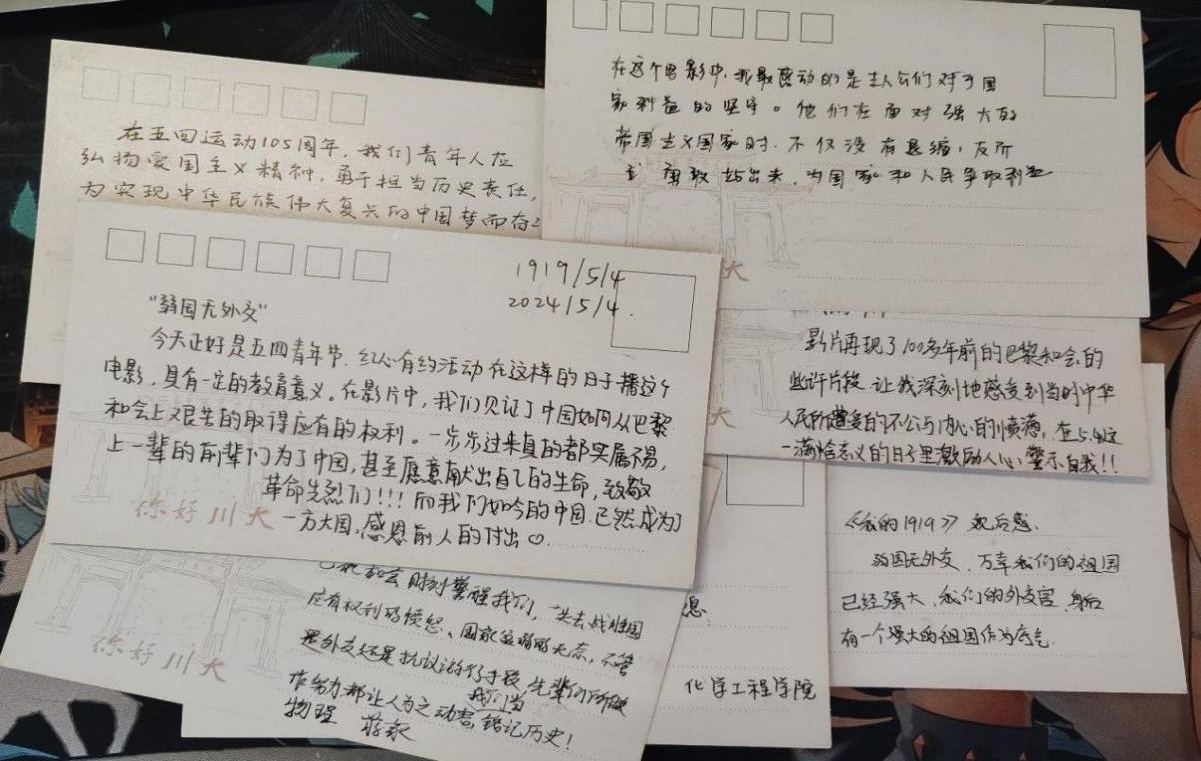 在五四运动105周年，我们青年人应
弘扬爱国主义精神，勇于担当历史责任，
为实现中华民族伟大复兴的中国梦而奋
在这个电影中，我最感动的是主人公们对于国
家利益的坚守。他们在面对强大的
帝国主义国家时，不仅没有退缩，反所
勇敢站出来，为国家和人民争取利益
大
1919/5/4
2024/5/4.
“弱国无外交”
今天正好是五四青年节，红心有约活动在这样的日子播这个
电影，具有一定的教育意义。在影片中，我们见证了中国如何从巴黎
和会上艰苦的取得应有的权利。一步步过来真的都实属不易，
上一辈的前辈们为了中国，甚至愿意献出自己的生命，致敬
革命先烈们!!!而我们如今的中国，已然成为了
一方大国，感恩前人的付出♡.
你好川大
影片再现了100多年前的巴黎和会的
些许片段，让我深刻地感受到当时中华
人民所遭受的不公与内心的愤懑，在5.4这
一满怀意义的日子里激励人心，警示自我!!
大
《我的1919》观后感.
弱国无外交，万幸我们的祖国
已经强大，我们的外交官，身后
有一个强大的祖国作为底气.
和会时刻警醒我们，失去战胜国
应有权利的愤怒、国家监弱的无奈，不管
是外交还是抗议的行手段，先辈们所做
作努力都让人为之动容，我们当铭记历史!
物理 蒋
你好川大
息
化学工程学院